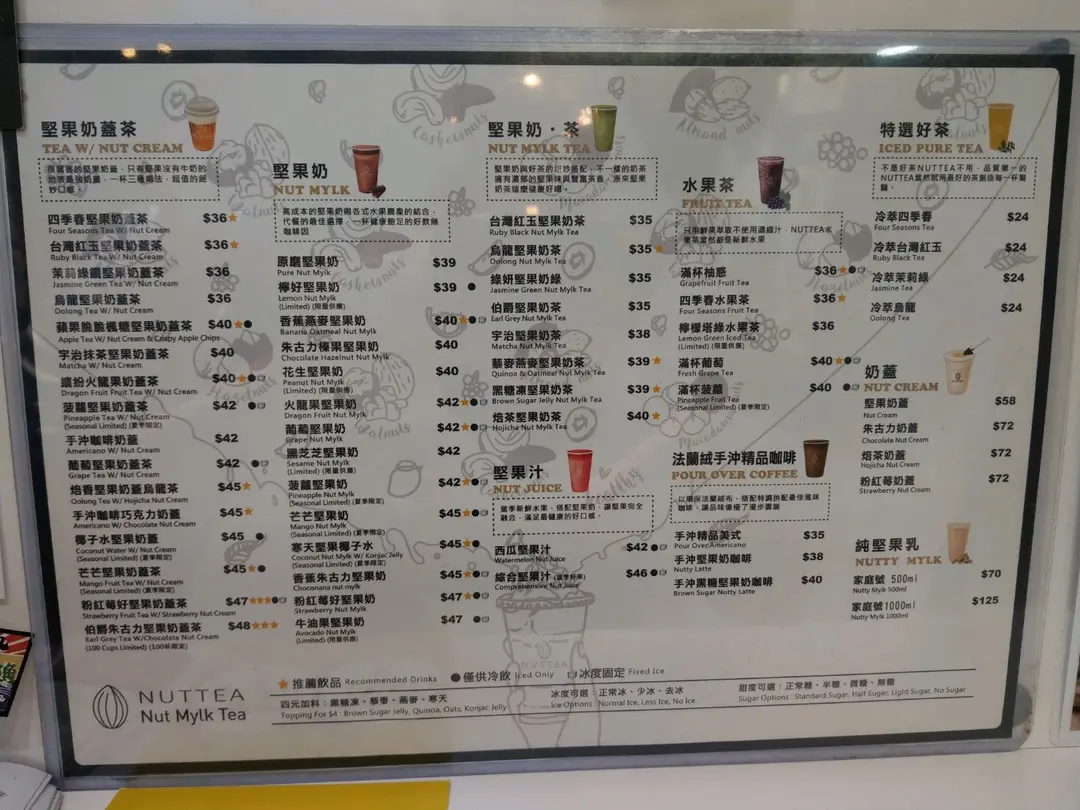 堅果奶蓋茶
TEA W/ NUT CREAM
四季春堅果奶蓋茶 $36★
Four Seasons Tea W/ Nut Cream
台灣紅玉堅果奶蓋茶 $36★
Ruby Black Tea W/ Nut Cream
茉莉綠鑽堅果奶蓋茶 $36
Jasmine Green Tea W/ Nut Cream
烏龍堅果奶蓋茶 $36
Oolong Tea W/ Nut Cream
蘋果脆脆楓糖堅果奶蓋茶 $40★●
Apple Tea W/ Nut Cream & Crispy Apple Chips
宇治抹茶堅果奶蓋茶 $40
Matcha W/ Nut Cream
繽紛火龍果堅果奶蓋茶 $40★●
Dragon Fruit Fruit Tea W/ Nut Cream
菠蘿堅果奶蓋茶 $42 ●
Pineapple Tea W/ Nut Cream
(Seasonal Limited) (夏季限定)
手沖咖啡奶蓋 $42
Americano W/ Nut Cream
葡萄堅果奶蓋茶 $42 ●
Grape Tea W/ Nut Cream
焙香堅果奶蓋烏龍茶 $45★
Oolong Tea W/ Hojicha Nut Cream
手沖咖啡巧克力奶蓋 $45★
Americano W/ Chocolate Nut Cream
椰子水堅果奶蓋 $45 ●
Coconut Water W/ Nut Cream
(Seasonal Limited) (夏季限定)
芒芒堅果奶蓋茶 $45★●
Mango Fruit Tea W/ Nut Cream
(Seasonal Limited) (夏季限定)
粉紅莓好堅果奶蓋茶 $47★★★●
Strawberry Fruit Tea W/ Strawberry Nut Cream
伯爵朱古力堅果奶蓋茶 $48★★★
Earl Grey Tea W/Chocolate Nut Cream
(100 Cups Limited) (100杯限定)
堅果奶
NUT MYLK
高成本的堅果奶與各式水果農產的結合，
代餐的最佳選擇，一杯健康飽足的好飲無
咖啡因
原磨堅果奶 $39
Pure Nut Mylk
檸好堅果奶 $39 ●
Lemon Nut Mylk
(Limited) (限量供應)
香蕉燕麥堅果奶 $40★●
Banana Oatmeal Nut Mylk
朱古力榛果堅果奶 $40
Chocolate Hazelnut Nut Mylk
花生堅果奶 $40
Peanut Nut Mylk
(Limited) (限量供應)
火龍果堅果奶 $42★●
Dragon Fruit Nut Mylk
葡萄堅果奶 $42★●
Grape Nut Mylk
黑芝芝堅果奶 $42
Sesame Nut Mylk
(Limited) (限量供應)
菠蘿堅果奶 $42★●
Pineapple Nut Mylk
(Seasonal Limited) (夏季限定)
芒芒堅果奶 $45★●
Mango Nut Mylk
(Seasonal Limited) (夏季限定)
寒天堅果椰子水 $45★●
Coconut Nut Mylk W/ Konjac Jelly
(Seasonal Limited) (夏季限定)
香蕉朱古力堅果奶 $45★●
Choconana nut Mylk
粉紅莓好堅果奶 $47★●
Strawberry Nut Mylk
牛油果堅果奶 $47 ●
Avocado Nut Mylk
(Limited) (限量供應)
堅果奶・茶
NUT MYLK TEA
堅果奶與好茶的絕妙搭配，不一樣的奶茶
擁有濃郁的堅果味與豐富茶香，原來堅果
奶茶這麼健康好喝。
台灣紅玉堅果奶茶 $35
Ruby Black Nut Mylk Tea
烏龍堅果奶茶 $35★
Oolong Nut Mylk Tea
綠妍堅果奶綠 $35
Jasmine Green Nut Mylk Tea
伯爵堅果奶茶 $35
Earl Grey Nut Mylk Tea
宇治堅果奶茶 $38
Matcha Nut Mylk Tea
藜麥燕麥堅果奶茶 $39★
Quinoa & Oatmeal Nut Mylk Tea
黑糖凍堅果奶茶 $39★
Brown Sugar Jelly Nut Mylk Tea
焙茶堅果奶茶 $40★
Hojicha Nut Mylk Tea
堅果汁
NUT JUICE
當季新鮮水果，搭配堅果奶，讓堅果完全
融合，滿足最健康的好口感。
西瓜堅果汁 $42●
Watermelon Nut Juice
綜合堅果汁 $46●
Comprehensive Nut Juice
水果茶
FRUIT TEA
只用鮮果萃取不使用濃縮汁，NUTTEA水
果茶當然都是新鮮水果
滿杯柚惑 $36★●
Grapefruit Fruit Tea
四季春水果茶 $36★
Four Seasons Fruit Tea
檸檬塔綠水果茶 $36
Lemon Green Iced Tea
(Limited) (限量供應)
滿杯葡萄 $40★●
Fresh Grape Tea
滿杯菠蘿 $40 ●
Pineapple Fruit Tea
(Seasonal Limited) (夏季限定)
法蘭絨手沖精品咖啡
POUR OVER COFFEE
以環保法蘭絨布，搭配特調拼配最佳風味
咖啡，讓品味像極了漫步雲端
手沖精品美式 $35
Pour Over Americano
手沖堅果奶咖啡 $38
Nutty Latte
手沖黑糖堅果奶咖啡 $40
Brown Sugar Nutty Latte
特選好茶
ICED PURE TEA
不是好茶NUTTEA不用，品質第一的
NUTTEA當然就用最好的茶創造每一杯驚
豔。
冷萃四季春 $24
Four Seasons Tea
冷萃台灣紅玉 $24
Ruby Black Tea
冷萃茉莉綠 $24
Jasmine Tea
冷萃烏龍 $24
Oolong Tea
奶蓋
NUT CREAM
堅果奶蓋 $58
Nut Cream
朱古力奶蓋 $72
Chocolate Nut Cream
焙茶奶蓋 $72
Hojicha Nut Cream
粉紅莓奶蓋 $72
Strawberry Nut Cream
純堅果乳
NUTTY MYLK
家庭號 500ml $70
Nutty Mylk 500ml
家庭號1000ml $125
Nutty Mylk 1000ml
NUTTEA
Nut Mylk Tea
★推薦飲品 Recommended Drinks ●僅供冷飲 Iced Only 冰度固定 Fixed Ice
四元加料：黑糖凍、藜麥、燕麥、寒天
Topping For $4 : Brown Sugar Jelly, Quinoa, Oats, Konjac Jelly
冰度可選：正常冰、少冰、去冰
Ice Options : Normal Ice, Less Ice, No Ice
甜度可選：正常糖、半糖、微糖、無糖
Sugar Options : Standard Sugar, Half Sugar, Light Sugar, No Sugar